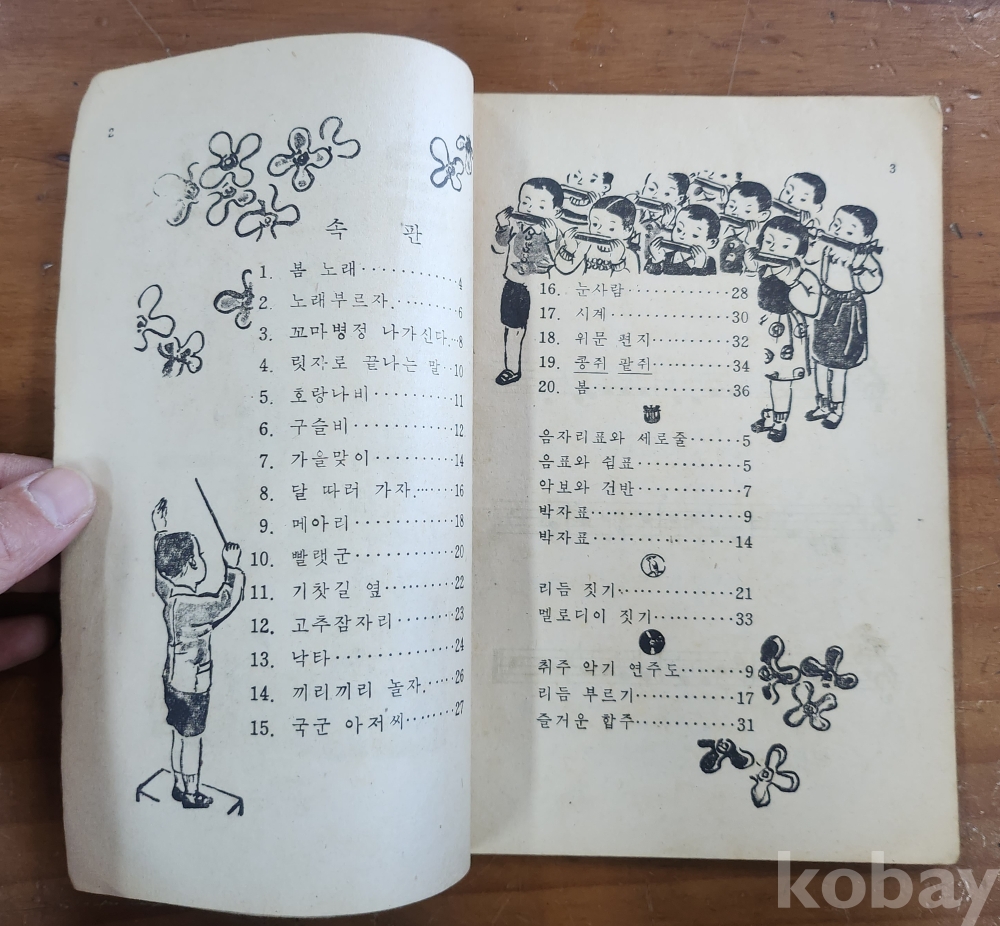 2
속 판
1. 봄 노래··············4
2. 노래부르자.··········6
3. 꼬마병정 나가신다.···8
4. 릿자로 끝나는 말··10
5. 호랑나비············11
6. 구슬비··············12
7. 가을맞이············14
8. 달 따러 가자.·······16
9. 메아리··············18
10. 빨랫군·············20
11. 기찻길 옆··········22
12. 고추잠자리·········23
13. 낙타···············24
14. 끼리끼리 놀자.·····26
15. 국군 아저씨········27
3
16. 눈사람·············28
17. 시계···············30
18. 위문 편지··········32
19. 콩쥐 팥쥐··········34
20. 봄·················36
음자리표와 세로줄······5
음표와 쉼표············5
악보와 건반············7
박자표·················9
박자표················14
리듬 짓기·············21
멜로디이 짓기·········33
취주 악기 연주도·······9
리듬 부르기···········17
즐거운 합주···········31
kobay